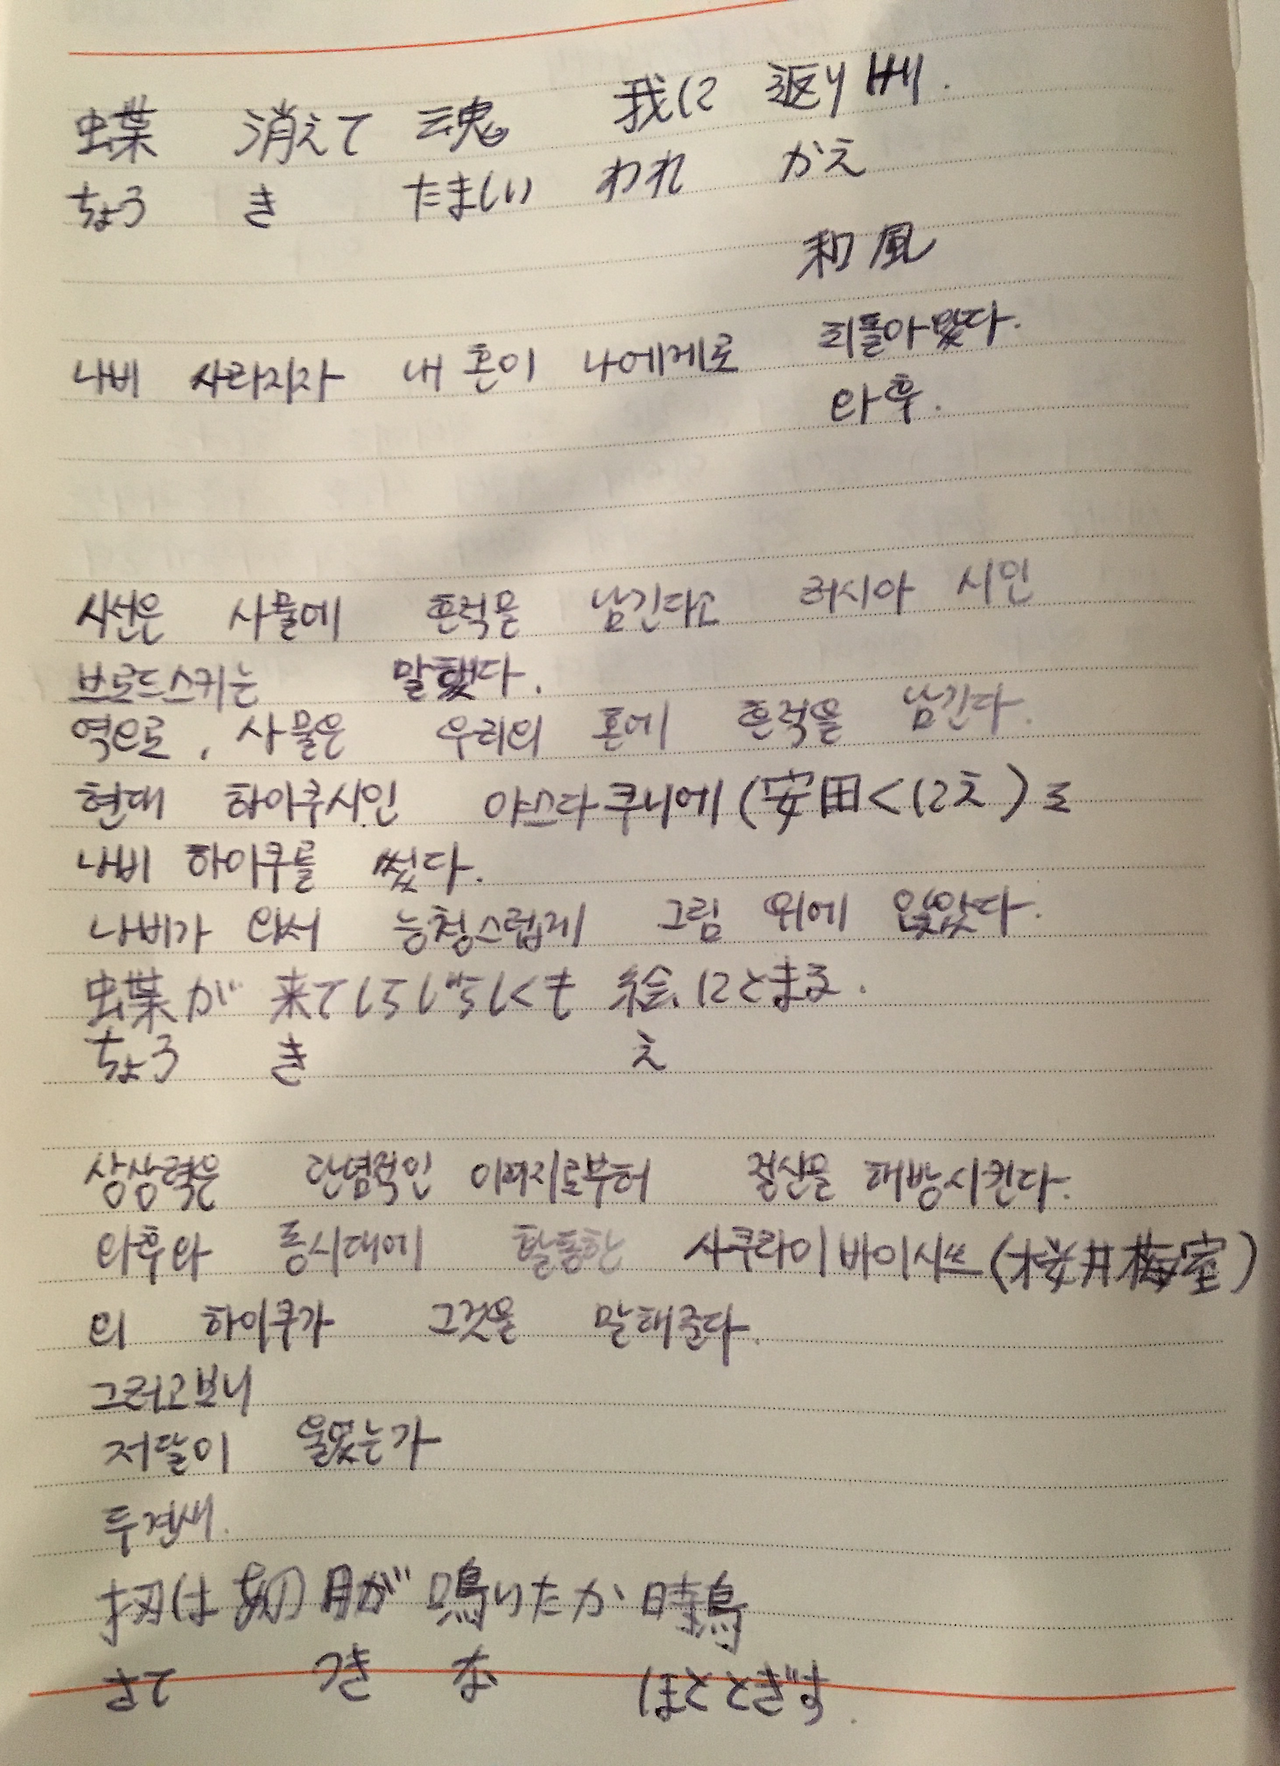 蝶 消えて 魂 我に 返りけり.
ちょう き たましい われ かえ
和風
나비 사라지자 내 혼이 나에게로 되돌아왔다.
와후.
시선은 사물에 흔적을 남긴다고 러시아 시인
브로드스키는 말했다.
역으로, 사물은 우리의 혼에 흔적을 남긴다.
현대 하이쿠시인 야스다 쿠니에(安田くにえ)도
나비 하이쿠를 썼다.
나비가 와서 능청스럽게 그림 위에 앉았다.
蝶が 来てしらじらしくも 絵にとまる.
ちょう き え
상상력은 단념적인 이미지로부터 정신을 해방시킨다.
와후와 동시대에 활동한 사쿠라이 바이시쓰(桜井梅室)
의 하이쿠가 그것을 말해준다.
그러고보니
저달이 울었는가
두견새.
扨は あの 月が 鳴いたか 時鳥
さて つき な ほととぎす.